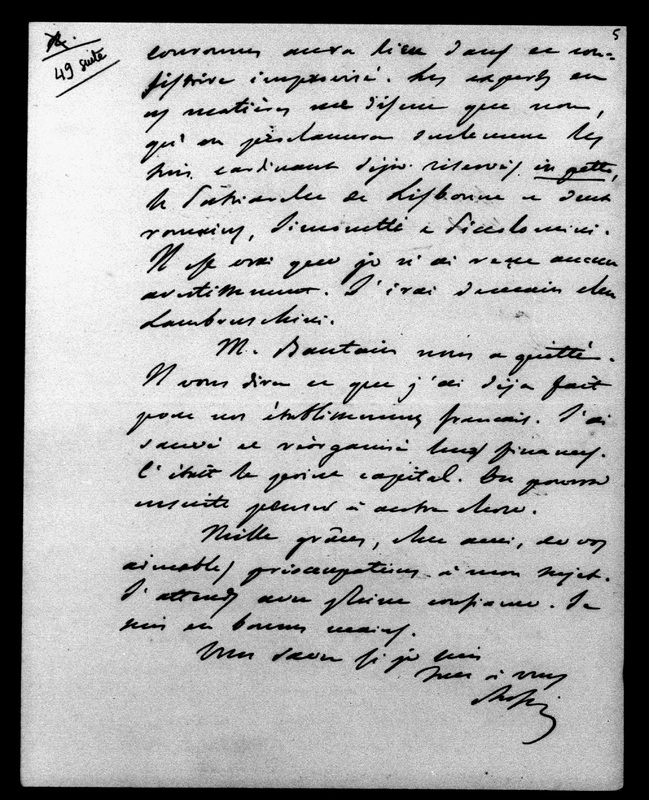 R.
49 suite
5
couronnes aura lieu dans ce con-
sistoire improvisé. Les experts en
ces matières me disent que non,
qu'on proclamera seulement les
trois cardinaux déjà réservés in petto,
le Patriarche de Lisbonne et deux
romains, Simonetti et Piccolomini.
Il est vrai que je n'ai reçu aucun
avertissement. J'irai demain chez
Lambruschini.
M. Bautain nous a quitté.
Il vous dira ce que j'ai déjà fait
pour nos établissements français. J'ai
sauvé et réorganisé leurs finances.
C'était le point capital. On pourra
ensuite penser à autre chose.
Mille grâces, cher ami, de vos
aimables préoccupations à mon sujet.
J'attends avec pleine confiance. Je
suis en bonnes mains.
Vous savez si je suis
tout à vous
Rossi